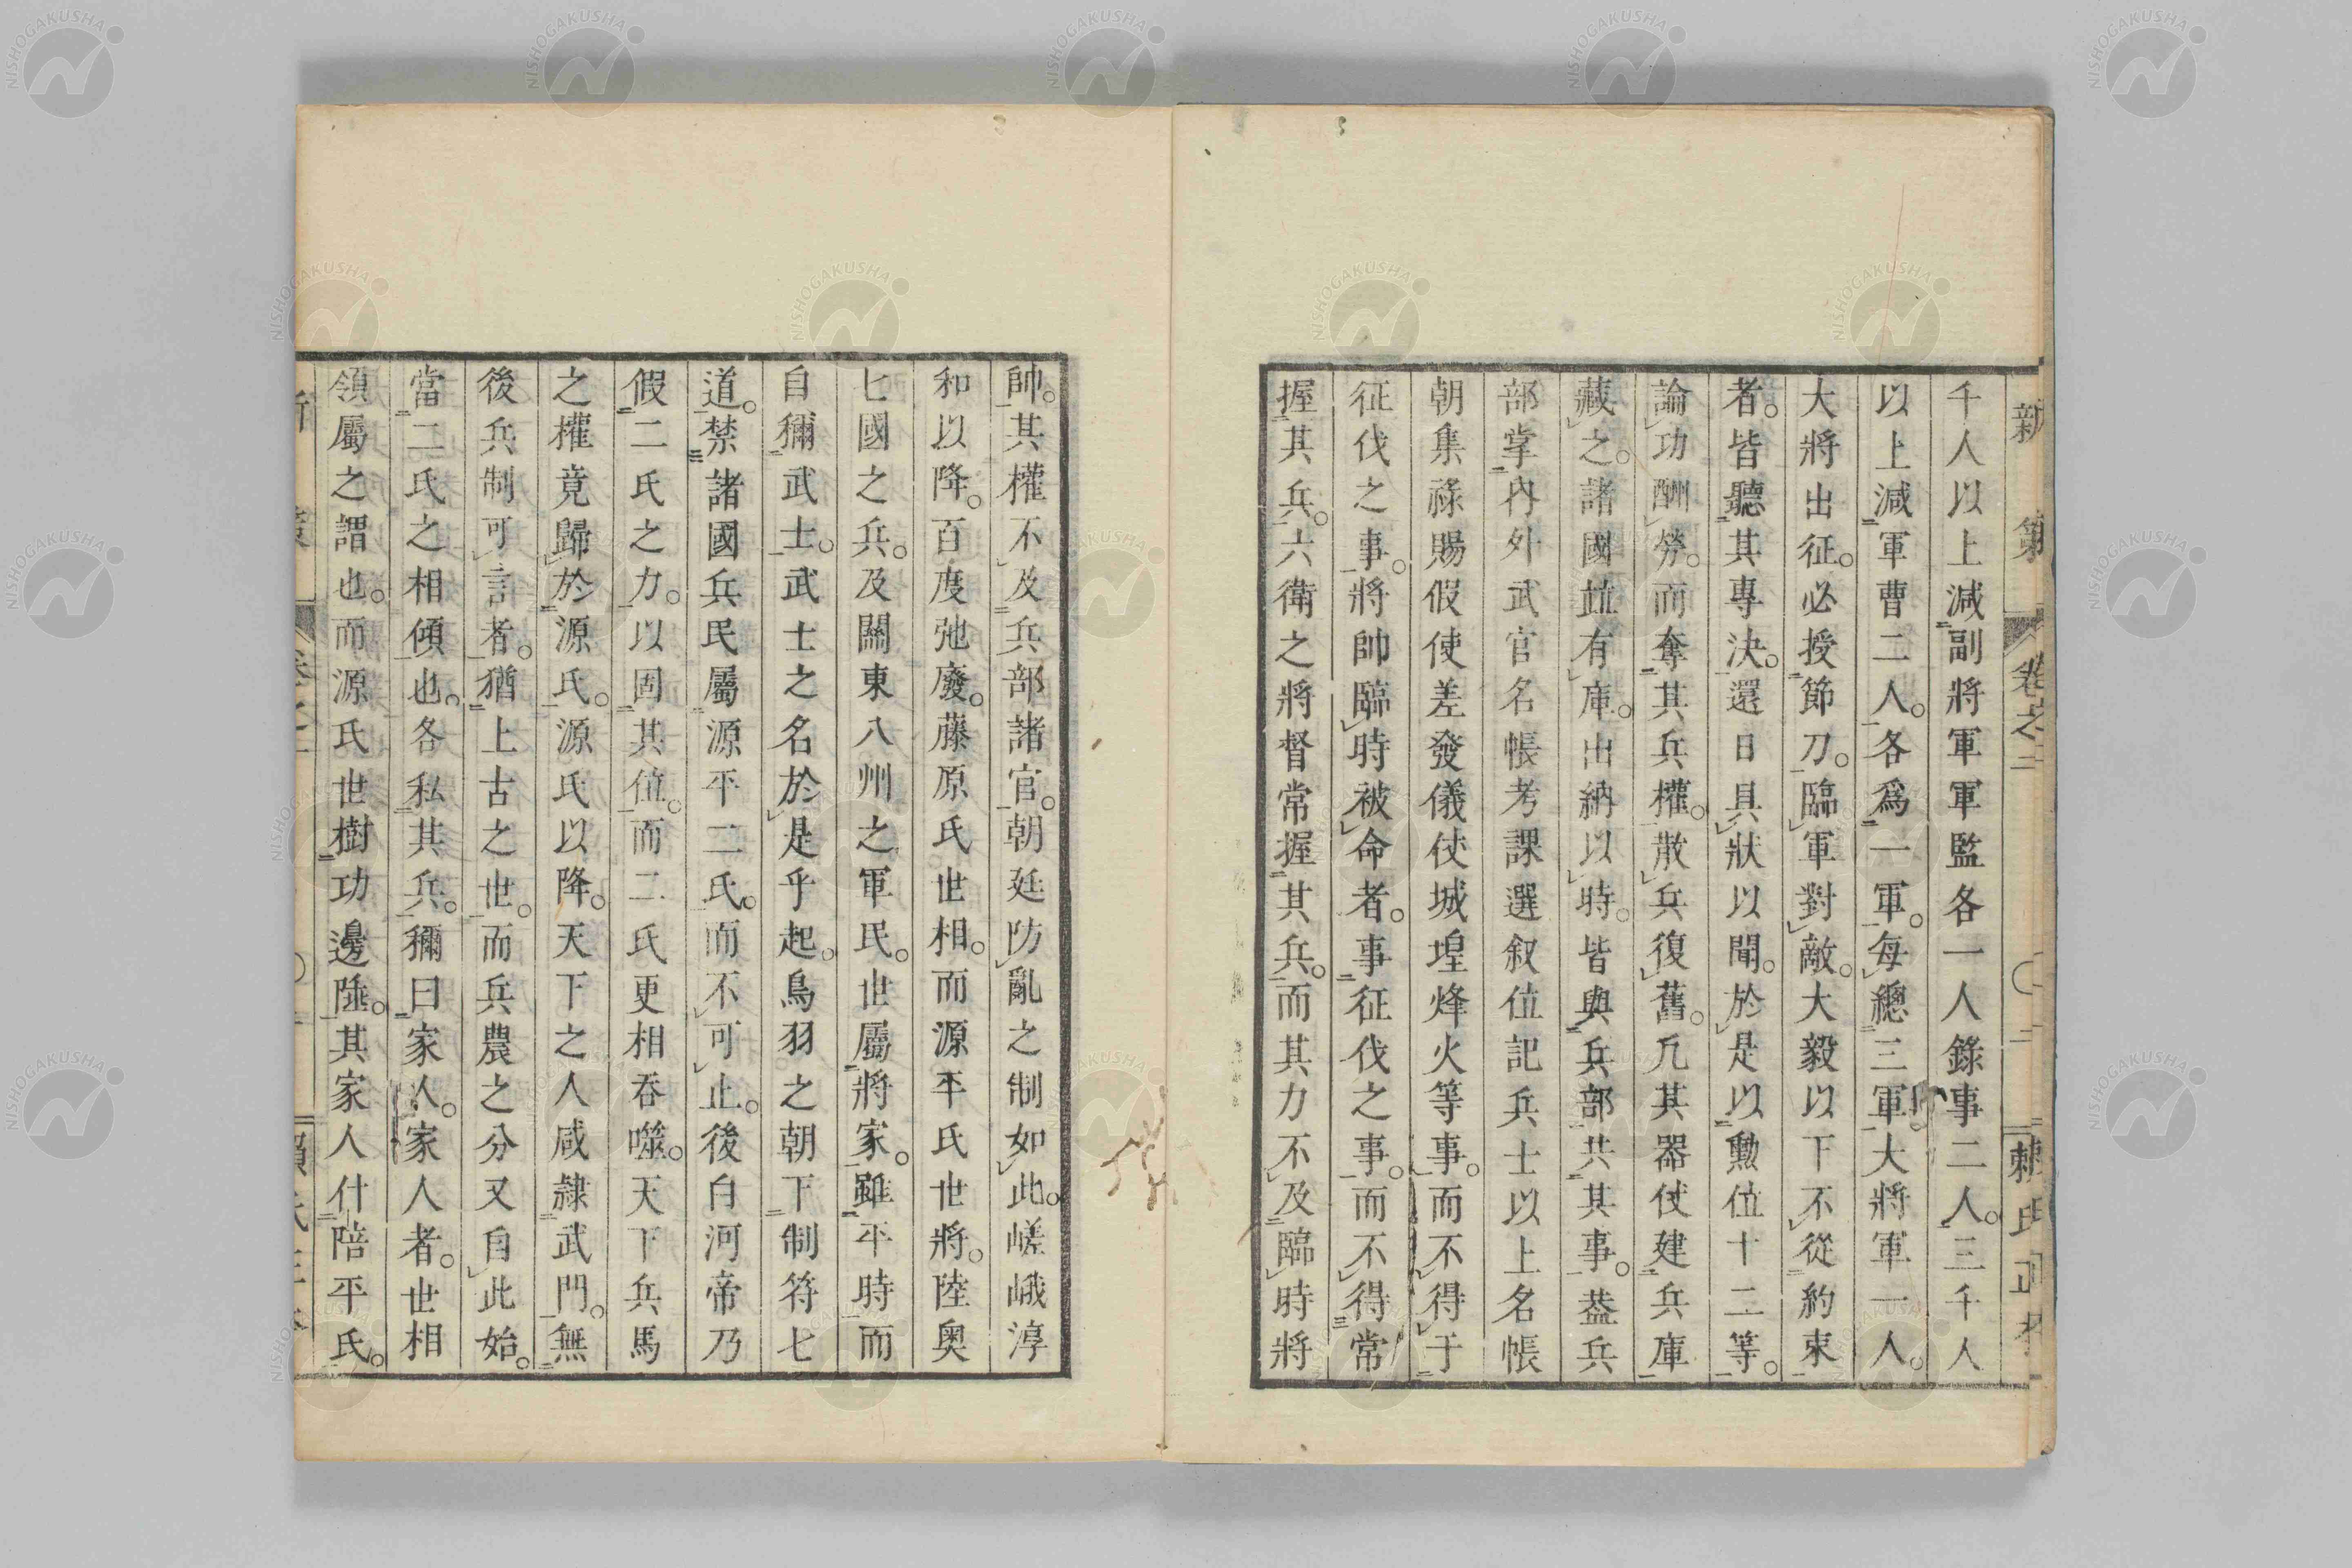 新策 卷之二 〇 二 賴氏正本
千人以上減副將軍軍監各一人錄事二人。三千人
以上減軍曹二人。各爲一軍。每總三軍。大將軍一人。
大將出征。必授節刀。臨軍對敵。大毅以下不從約束
者。皆聽其專決。還日具狀以聞。於是以勳位十二等。
論功酬勞。而奪其兵權。散兵復舊。凡其器仗建兵庫
藏之。諸國竝有庫。出納以時。皆與兵部共其事。葢兵
部掌內外武官名帳考課選叙位記兵士以上名帳
朝集祿賜假使差發儀仗城堭烽火等事。而不得于
征伐之事。將帥臨時被命者。事征伐之事。而不得常
握其兵。六衛之將督常握其兵。而其力不及臨時將
帥。其權不及兵部諸官。朝廷防亂之制如此。嵯峨淳
和以降。百度弛廢。藤原氏世相。而源平氏世將。陸奥
七國之兵。及關東八州之軍民。世屬將家。雖平時而
自稱武士。武士之名於是乎起。鳥羽之朝下制符七
道。禁諸國兵民屬源平二氏。而不可止。後白河帝乃
假二氏之力。以固其位。而二氏更相呑噬。天下兵馬
之權竟歸於源氏。源氏以降。天下之人咸隷武門。無
後兵制可言者。猶上古之世。而兵農之分又自此始。
當二氏之相傾也。各私其兵。稱曰家人。家人者。世相
領屬之謂也。而源氏世樹功邊陲。其家人什陪平氏。
NISHOGAKUSHA